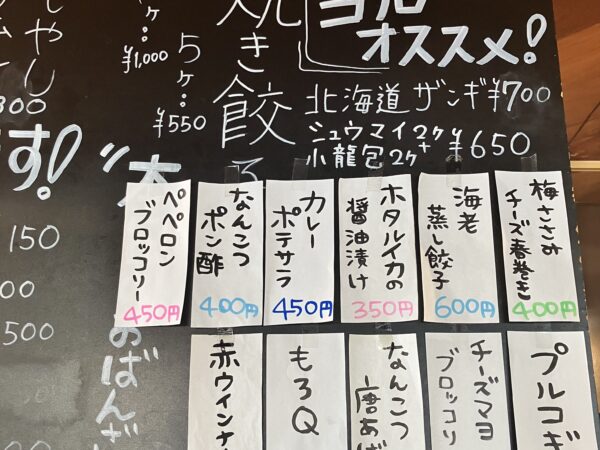 オススメ!
北海道 ザンギ ¥700
シュウマイ2ケ+
小龍包2ケ
¥650
焼き餃子
5ケ:¥550
ケ:¥1,000
す!
150
500
おばんざ
梅ささみ
チーズ春巻き
400円
海老
蒸し餃子
600円
ホタルイカの
醤油漬け
350円
カレー
ポテサラ
450円
なんこつ
ポン酢
400円
ペペロン
ブロッコリー
450円
プルコギ
チーズマヨ
ブロッコリ
なんこつ
唐あげ
もろQ
赤ウインナ